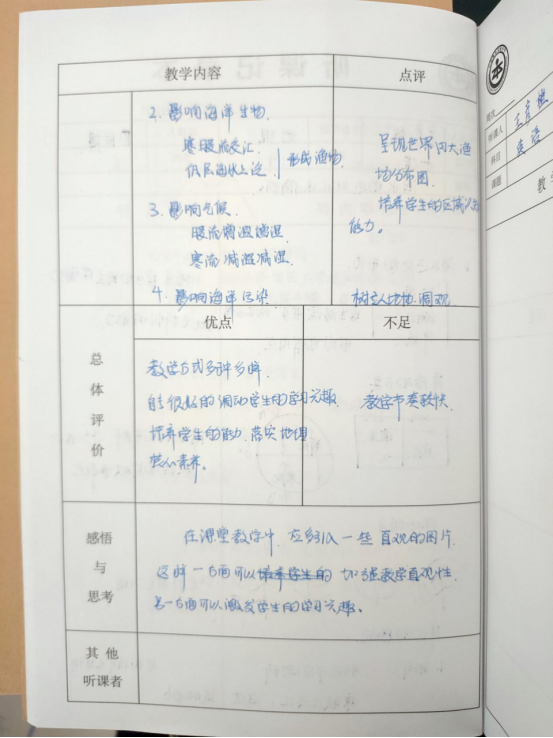 教学内容
点评
2. 影响海洋生物.
寒暖流交汇
形成渔场
呈现世界四大渔
场分布图.
培养学生的区域认知
能力。
3. 影响气候.
暖流增温增湿.
寒流减温减湿.
4. 影响海洋污染
树立人地协调观
优点
不足
总体评价
教学方式多种多样.
能很好的调动学生的学习兴趣
培养学生的能力.落实地理
核心素养。
教学节奏较快.
感悟
与
思考
在课堂教学中.应多引入一些直观的图片.
这样一方面可以培养学生的加强教学直观性.
另一方面可以激发学生的学习兴趣。
其他
听课者
听课人
科目
英语
课题